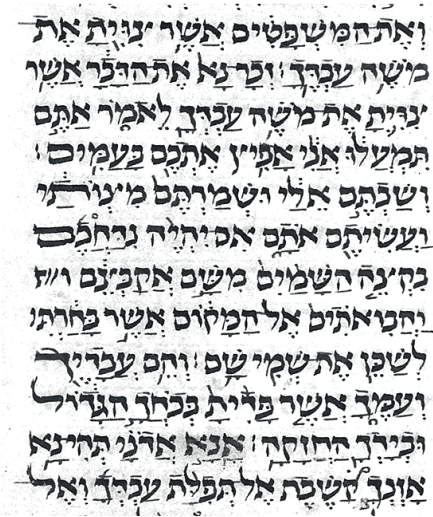 וְאֶת הַמִּשְׁפָּטִים אֲשֶׁר צִוִּיתָ אֶת
מֹשֶׁה עַבְדֶּךָ׃ זְכָר נָא אֶת הַדָּבָר אֲשֶׁר
צִוִּיתָ אֶת מֹשֶׁה עַבְדְּךָ לֵאמֹר אַתֶּם
תִּמְעָלוּ אֲנִי אָפִיץ אֶתְכֶם בָּעַמִּים׃
וְשַׁבְתֶּם אֵלַי וּשְׁמַרְתֶּם מִצְוֹתַי
וַעֲשִׂיתֶם אֹתָם אִם יִהְיֶה נִדַּחֲכֶם
בִּקְצֵה הַשָּׁמַיִם מִשָּׁם אֲקַבְּצֵם
וַהֲבִיאֹתִים אֶל הַמָּקוֹם אֲשֶׁר בָּחַרְתִּי
לְשַׁכֵּן אֶת שְׁמִי שָׁם׃ וְהֵם עֲבָדֶיךָ
וְעַמֶּךָ אֲשֶׁר פָּדִיתָ בְּכֹחֲךָ הַגָּדוֹל
וּבְיָדְךָ הַחֲזָקָה׃ אָנָּא אֲדֹנָי תְּהִי נָא
אָזְנְךָ קַשֶּׁבֶת אֶל תְּפִלַּת עַבְדְּךָ וְאֶל